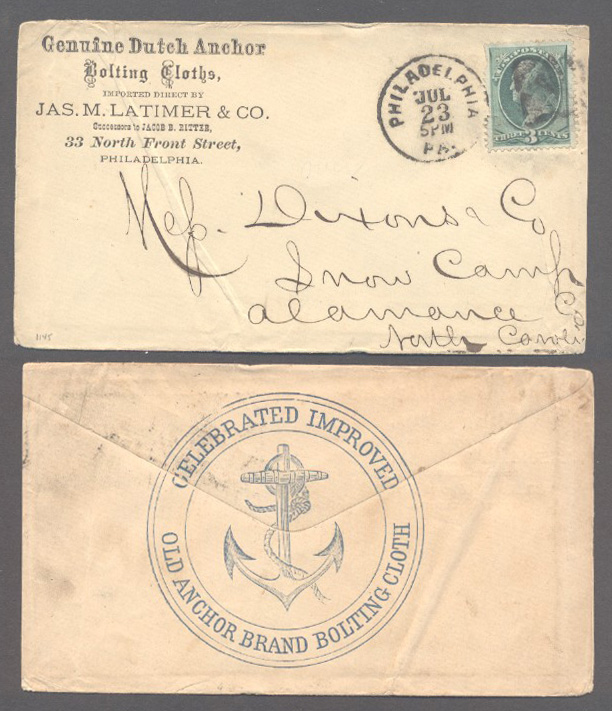 Genuine Dutch Anchor
Bolting Cloths,
IMPORTED DIRECT BY
JAS. M. LATIMER & CO.
Successors to JACOB B. RITTER,
33 North Front Street,
PHILADELPHIA.
PHILADELPHIA
JUL
23
5PM
PA.
U.S. POSTAGE
THREE 3 CENTS
Mess. Dixons & Co
Snow Camp
Alamance Co
North Caroli
1145
CELEBRATED IMPROVED
OLD ANCHOR BRAND BOLTING CLOTH